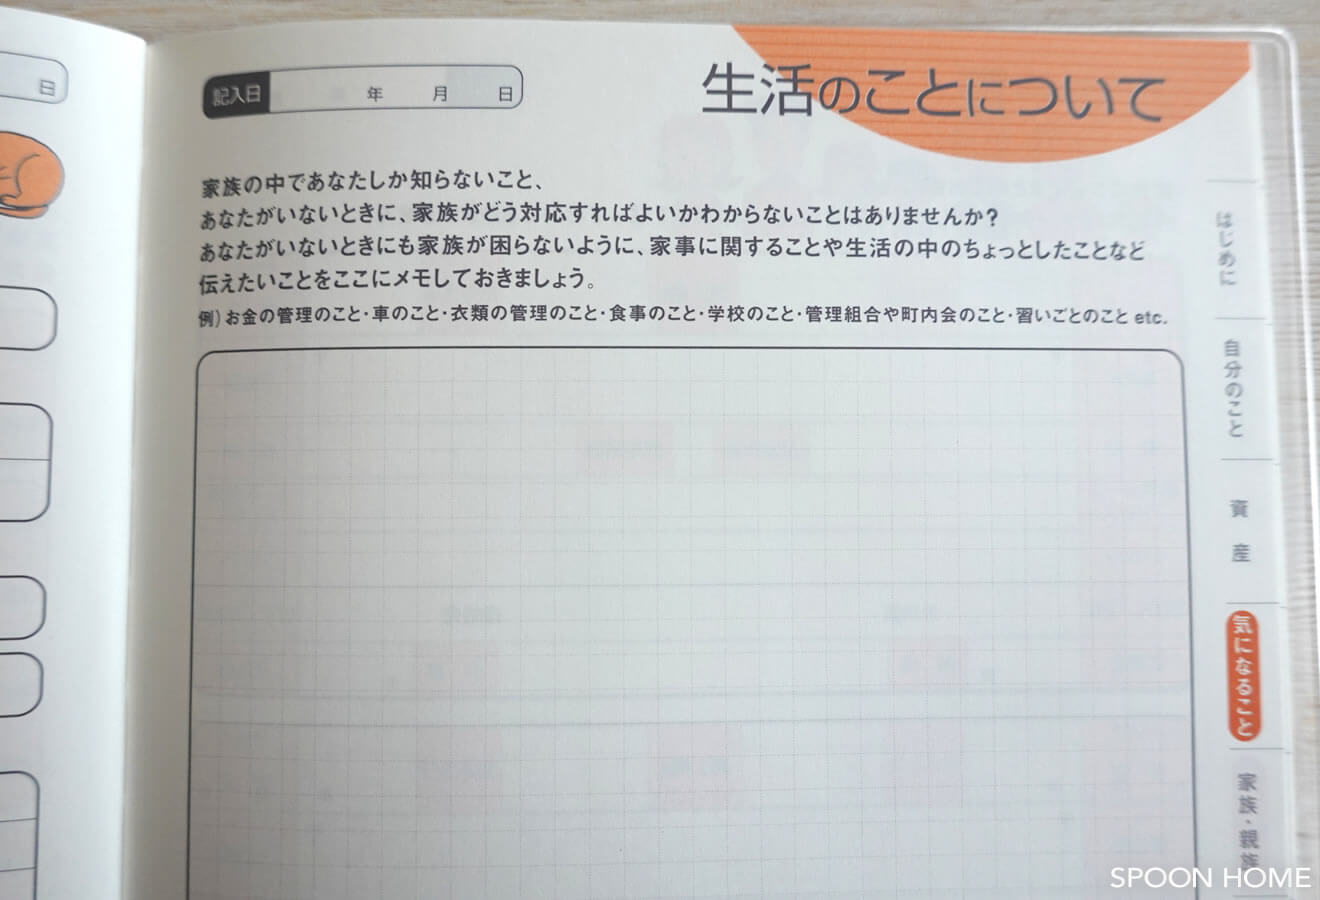 日
記入日 年 月 日
生活のことについて
家族の中であなたしか知らないこと、
あなたがいないときに、家族がどう対応すればよいかわからないことはありませんか?
あなたがいないときにも家族が困らないように、家事に関することや生活の中のちょっとしたことなど
伝えたいことをここにメモしておきましょう。
例)お金の管理のこと・車のこと・衣類の管理のこと・食事のこと・学校のこと・管理組合や町内会のこと・習いごとのこと etc.
はじめに
自分のこと
資産
気になること
家族・親族
SPOON HOME